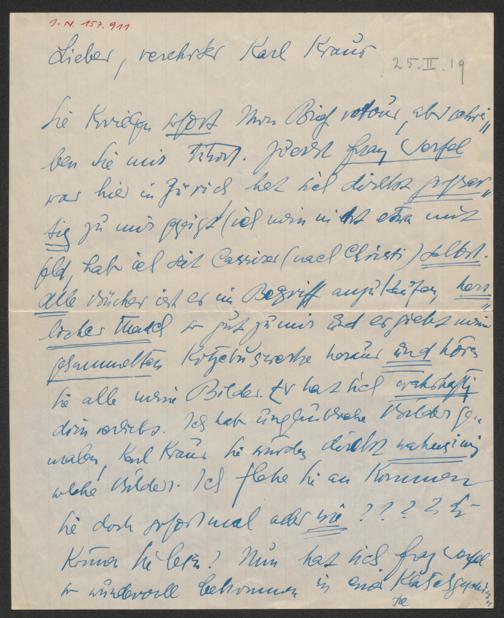 J.N. 157.911
Lieber, verehrter Karl Kraus
25.II.19
Sie kriegen sofort Ihren Brief retour, aber schrei"
ben Sie mir sofort. Zuerst Franz Werfel
war hier in Zürich hat sich direkt grossar"
tig zu mir gezeigt (ich mein nicht etwa mit
Geld, hab ich seit Cassirer (nach Christi) selbst.
Alle Bücher ist er im Begriff anzukaufen, herz"
licher Mensch so gut zu mir und er giebt meine
gesammelten heraus und hören
Sie alle meine Bilder. Er hat sich wahrhaftig
drin verliebt. Ich hab unglaubliche Bilder ge"
malen, Karl Kraus Sie würden direkt wahnsinnig
welche Bilder. Ich flehe Sie an kommen
Sie doch sofort mal oder nie ? ? ? ?
Können Sie lesen? Nun hat sich Franz Werfel
so wundervoll benommen in einer